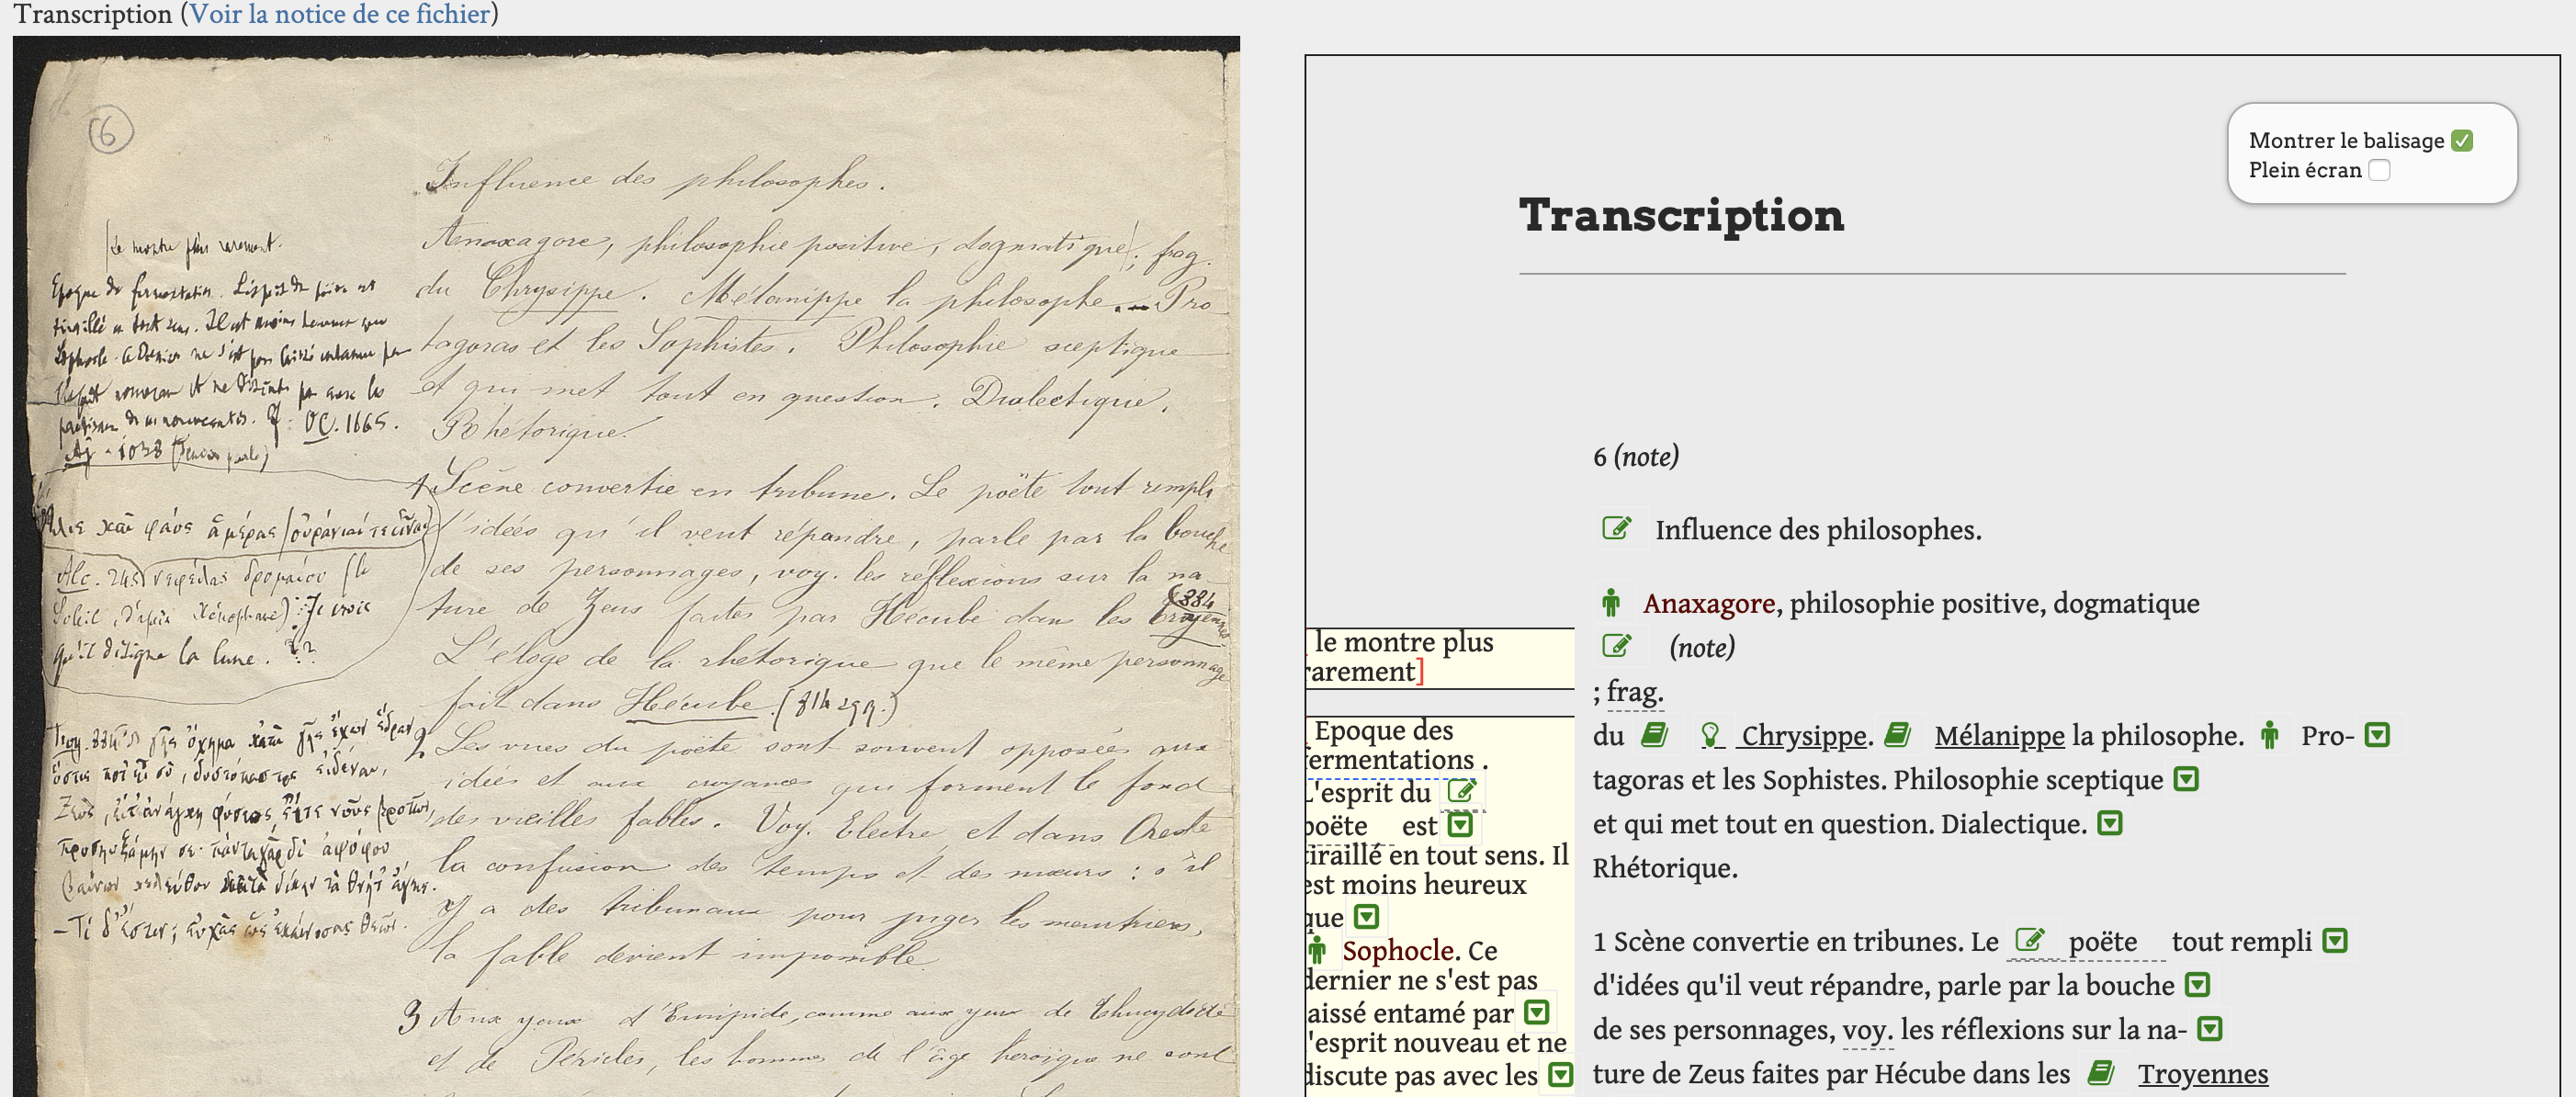 Transcription (Voir la notice de ce fichier)
6
Influence des philosophes.
Anaxagore, philosophie positive, dogmatique ; frag.
du Chrysippe. Mélanippe la philosophe. — Pro
tagoras et les Sophistes. Philosophie sceptique
et qui met tout en question. Dialectique.
Rhétorique.
1 Scène convertie en tribune. Le poëte tout rempli
d'idées qu'il veut répandre, parle par la bouche
de ses personnages, voy. les réflexions sur la na-
ture de Zeus faites par Hécube dans les Troyennes
(884
L'éloge de la rhétorique que le même personnage
fait dans Hécube. (814 sqq.)
2 Les vues du poëte sont souvent opposées aux
idées et aux croyances qui forment le fond
des vieilles fables. Voy. Electre, et dans Oreste
la confusion des temps et des mœurs : s'il
y a des tribunaux pour juger les meurtriers,
la fable devient impossible.
3 Aux yeux d'Euripide, comme aux yeux de Thucydide
et de Périclès, les hommes de l'âge héroïque ne sont
le montre plus rarement.
Epoque de fermentation. L'esprit du poëte est
tiraillé en tout sens. Il est moins heureux que
Sophocle. Ce dernier ne s'est pas laissé entamé par
l'esprit nouveau et ne discute pas avec les
partisans de ces nouveautés. Cf. OC. 1665.
Aj. 1038 (Teucer parle)
καὶ φάος ἁμέρας (οὐράνιαί τε δῖναι)
Alc. 245 νεφέλας δρομαίου (le
Soleil, d'après Xénophane) Je crois
qu'il désigne la lune. ??
Troy. 884 ὦ γῆς ὄχημα κἀπὶ γῆς ἔχων ἕδραν
ὅστις ποτ' εἶ σύ, δυστόπαστος εἰδέναι,
Ζεύς, εἴτ' ἀνάγκη φύσεος, εἴτε νοῦς βροτῶν,
προσηυξάμην σε· πάντα γὰρ δι' ἀψόφου
βαίνων κελεύθου κατὰ δίκην τὰ θνήτ' ἄγεις.
— Τί δ' ἔστιν; εὐχὰς ὡς ἐκαίνισας θεῶν.
Montrer le balisage
Plein écran
Transcription
6 (note)
Influence des philosophes.
Anaxagore, philosophie positive, dogmatique
(note)
; frag.
du Chrysippe. Mélanippe la philosophe. Pro-
tagoras et les Sophistes. Philosophie sceptique
et qui met tout en question. Dialectique.
Rhétorique.
1 Scène convertie en tribunes. Le poëte tout rempli
d'idées qu'il veut répandre, parle par la bouche
de ses personnages, voy. les réflexions sur la na-
ture de Zeus faites par Hécube dans les Troyennes
le montre plus
rarement]
Epoque des
fermentations .
L'esprit du
poëte est
tiraillé en tout sens. Il
est moins heureux
que
Sophocle. Ce
dernier ne s'est pas
laissé entamé par
l'esprit nouveau et ne
discute pas avec les